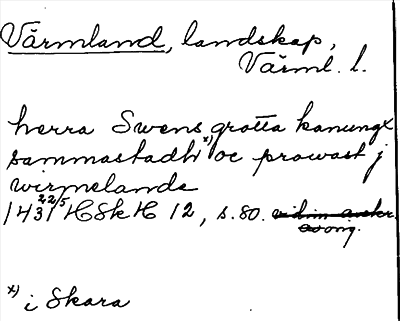 Värmland, landskap,
Värml. l.
herra Swens grotta kanungx
sammastadh x) oc prowast j
wirmelande
1431 22/5 HSkH 12, s. 80. vidim. avskr.
x) i Skara